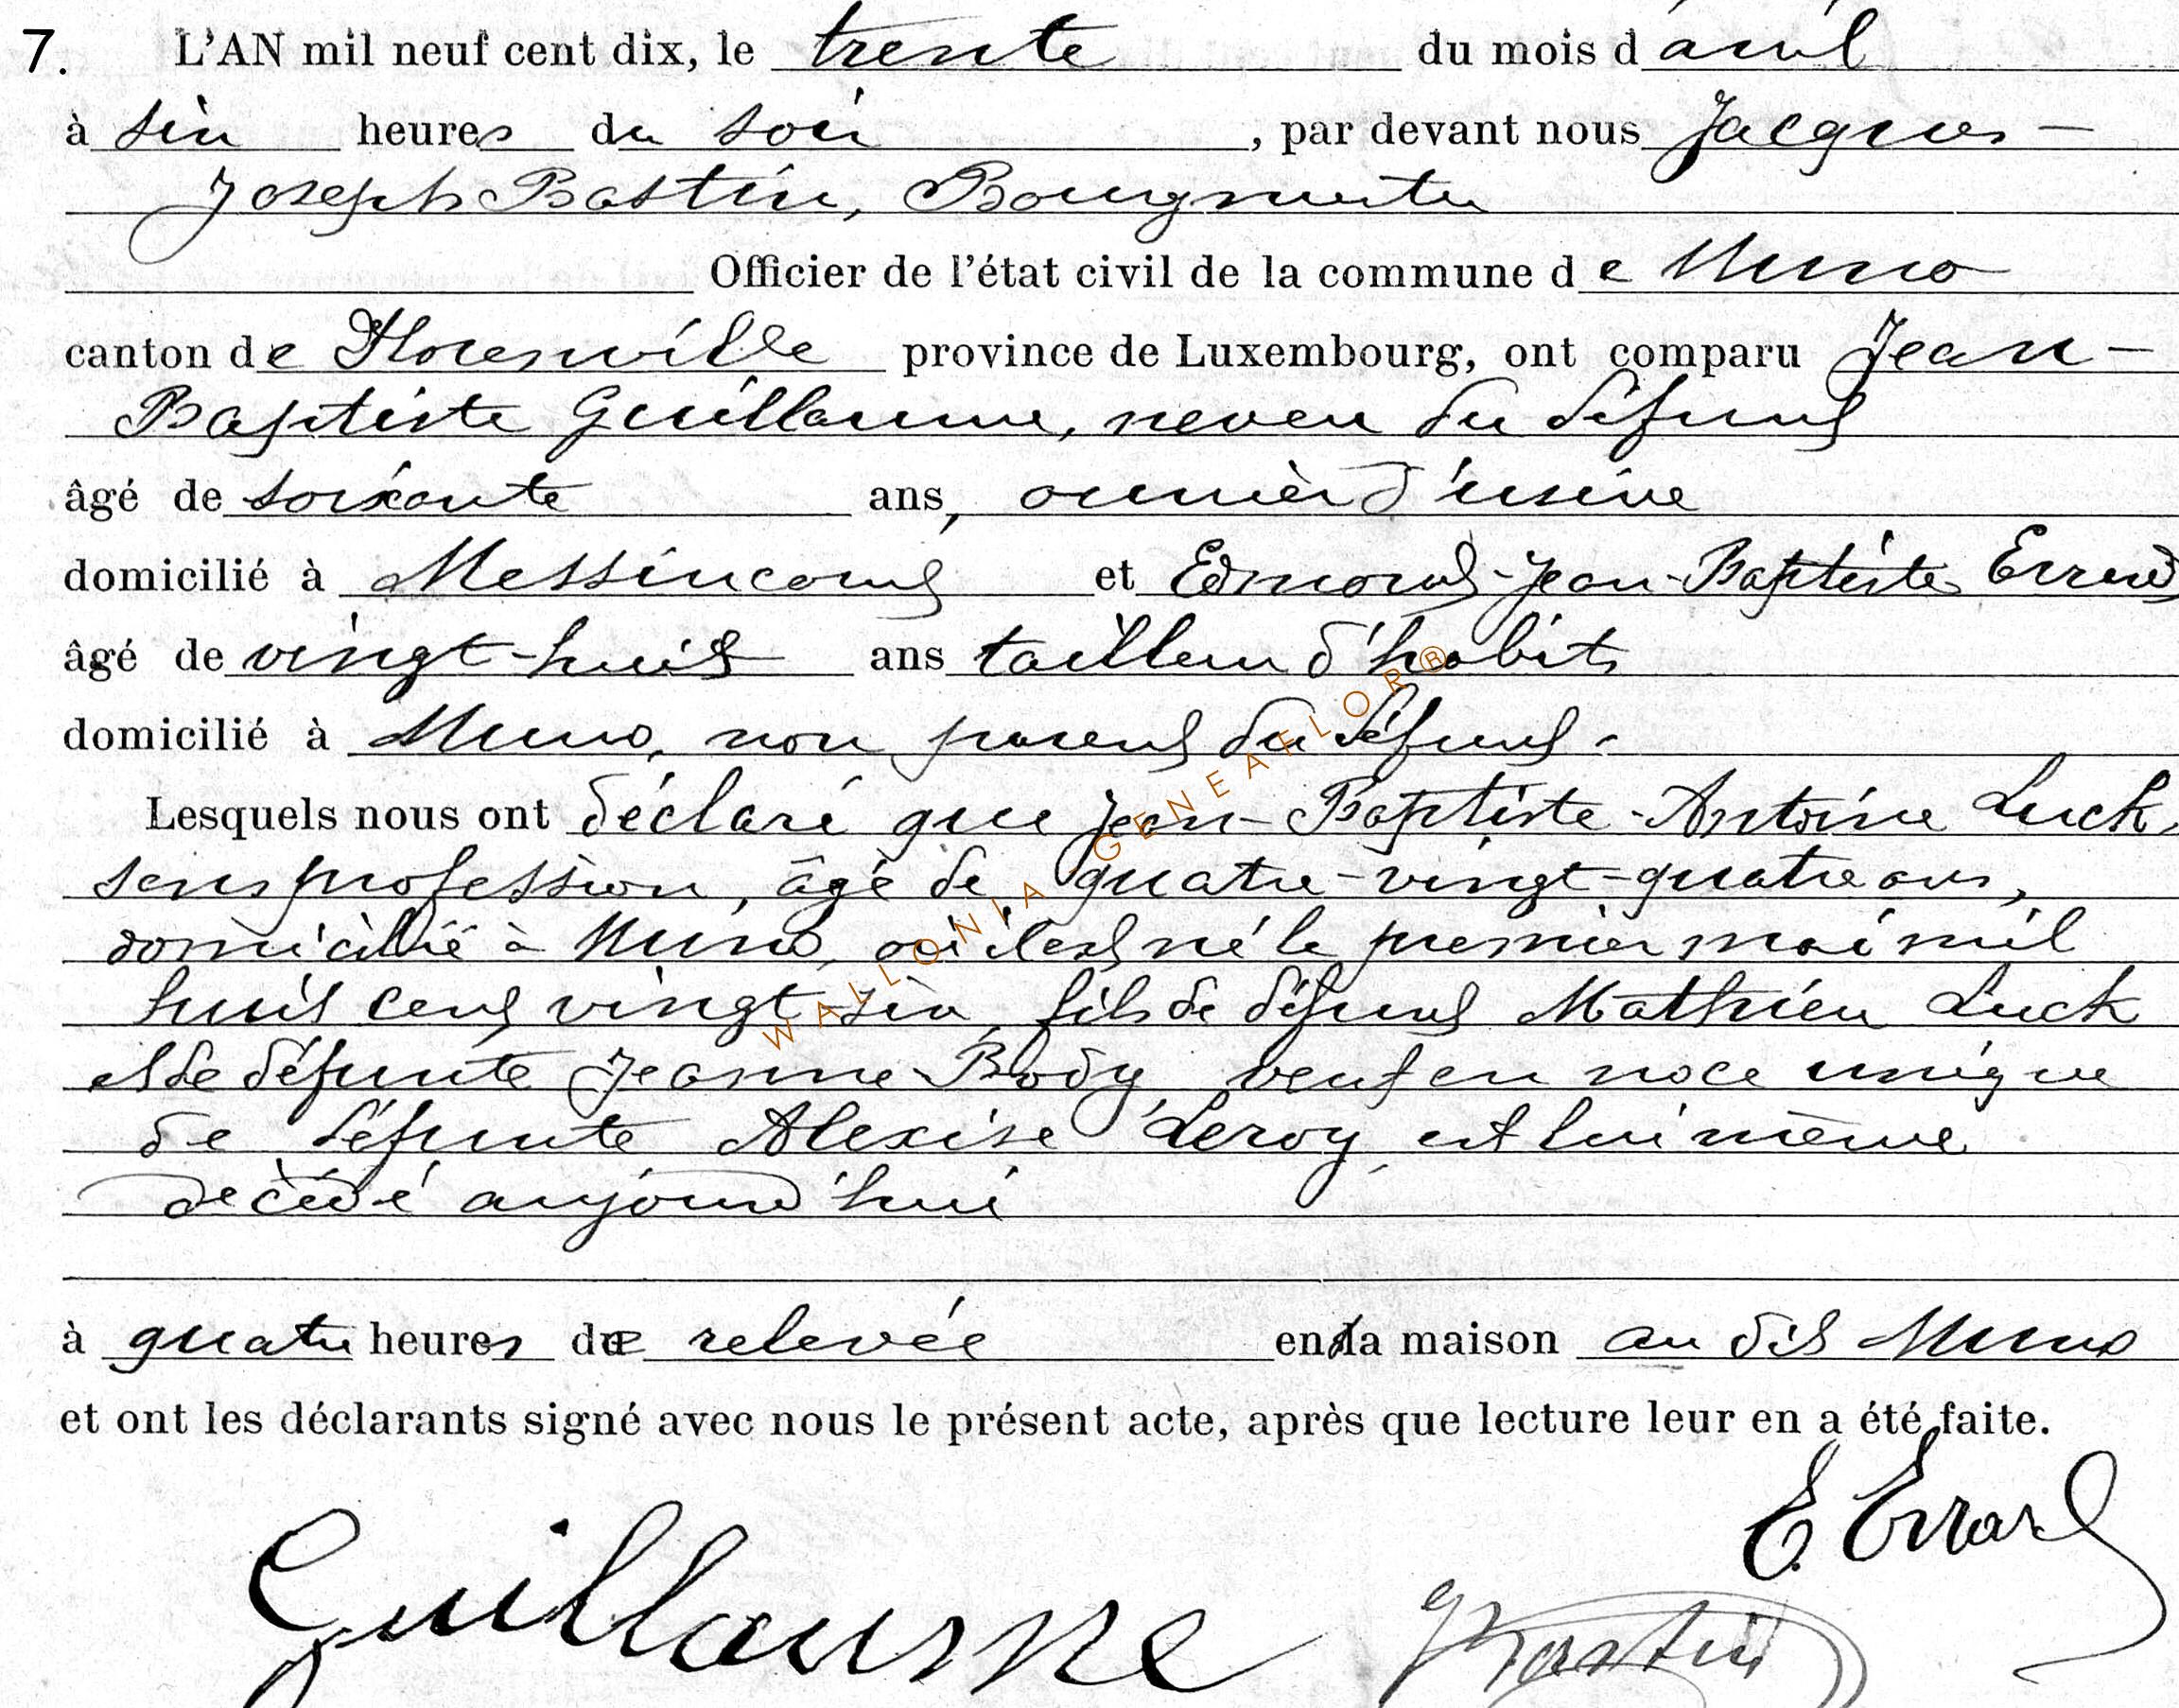 7. L'AN mil neuf cent dix, le trente du mois d'avril
à six heures du soir, par devant nous Jacques-
Joseph Bastin, Bourgmestre
Officier de l'état civil de la commune de Muno
canton de Florenville province de Luxembourg, ont comparu Jean-
Baptiste Guillaume, neveu du défunt
âgé de soixante ans, ouvrier d'usine
domicilié à Messincourt et Edmond-Jean-Baptiste Errard
âgé de vingt-huit ans tailleur d'habits
domicilié à Muno, non parent du défunt.
Lesquels nous ont déclaré que Jean-Baptiste-Antoine Luck,
sans profession, âgé de quatre-vingt-quatre ans,
domicilié à Muno, où il est né le premier mai mil
huit cent vingt-six, fils de défunt Mathieu Luck
et de défunte Jeanne Body, veuf en noce unique
de défunte Alexise Leroy, est lui même
décédé aujourd'hui
à quatre heures de relevée en sa maison au dit Muno
et ont les déclarants signé avec nous le présent acte, après que lecture leur en a été faite.
E. Errard
Guillaume
J Bastin
WALLONIA GENEAFLOR®